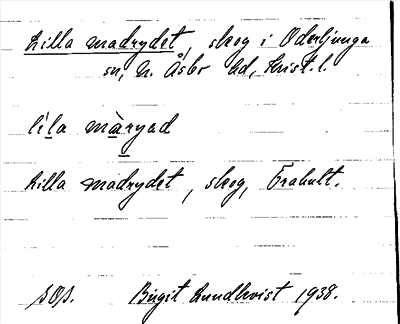 Lilla madrydet, skog i Oderljunga
sn, N. Åsbo hd, Krist. l.
li̱la mà̱ryad
Lilla madrydet, skog, Frahult.
SOS. Birgit Lundkvist 1938.